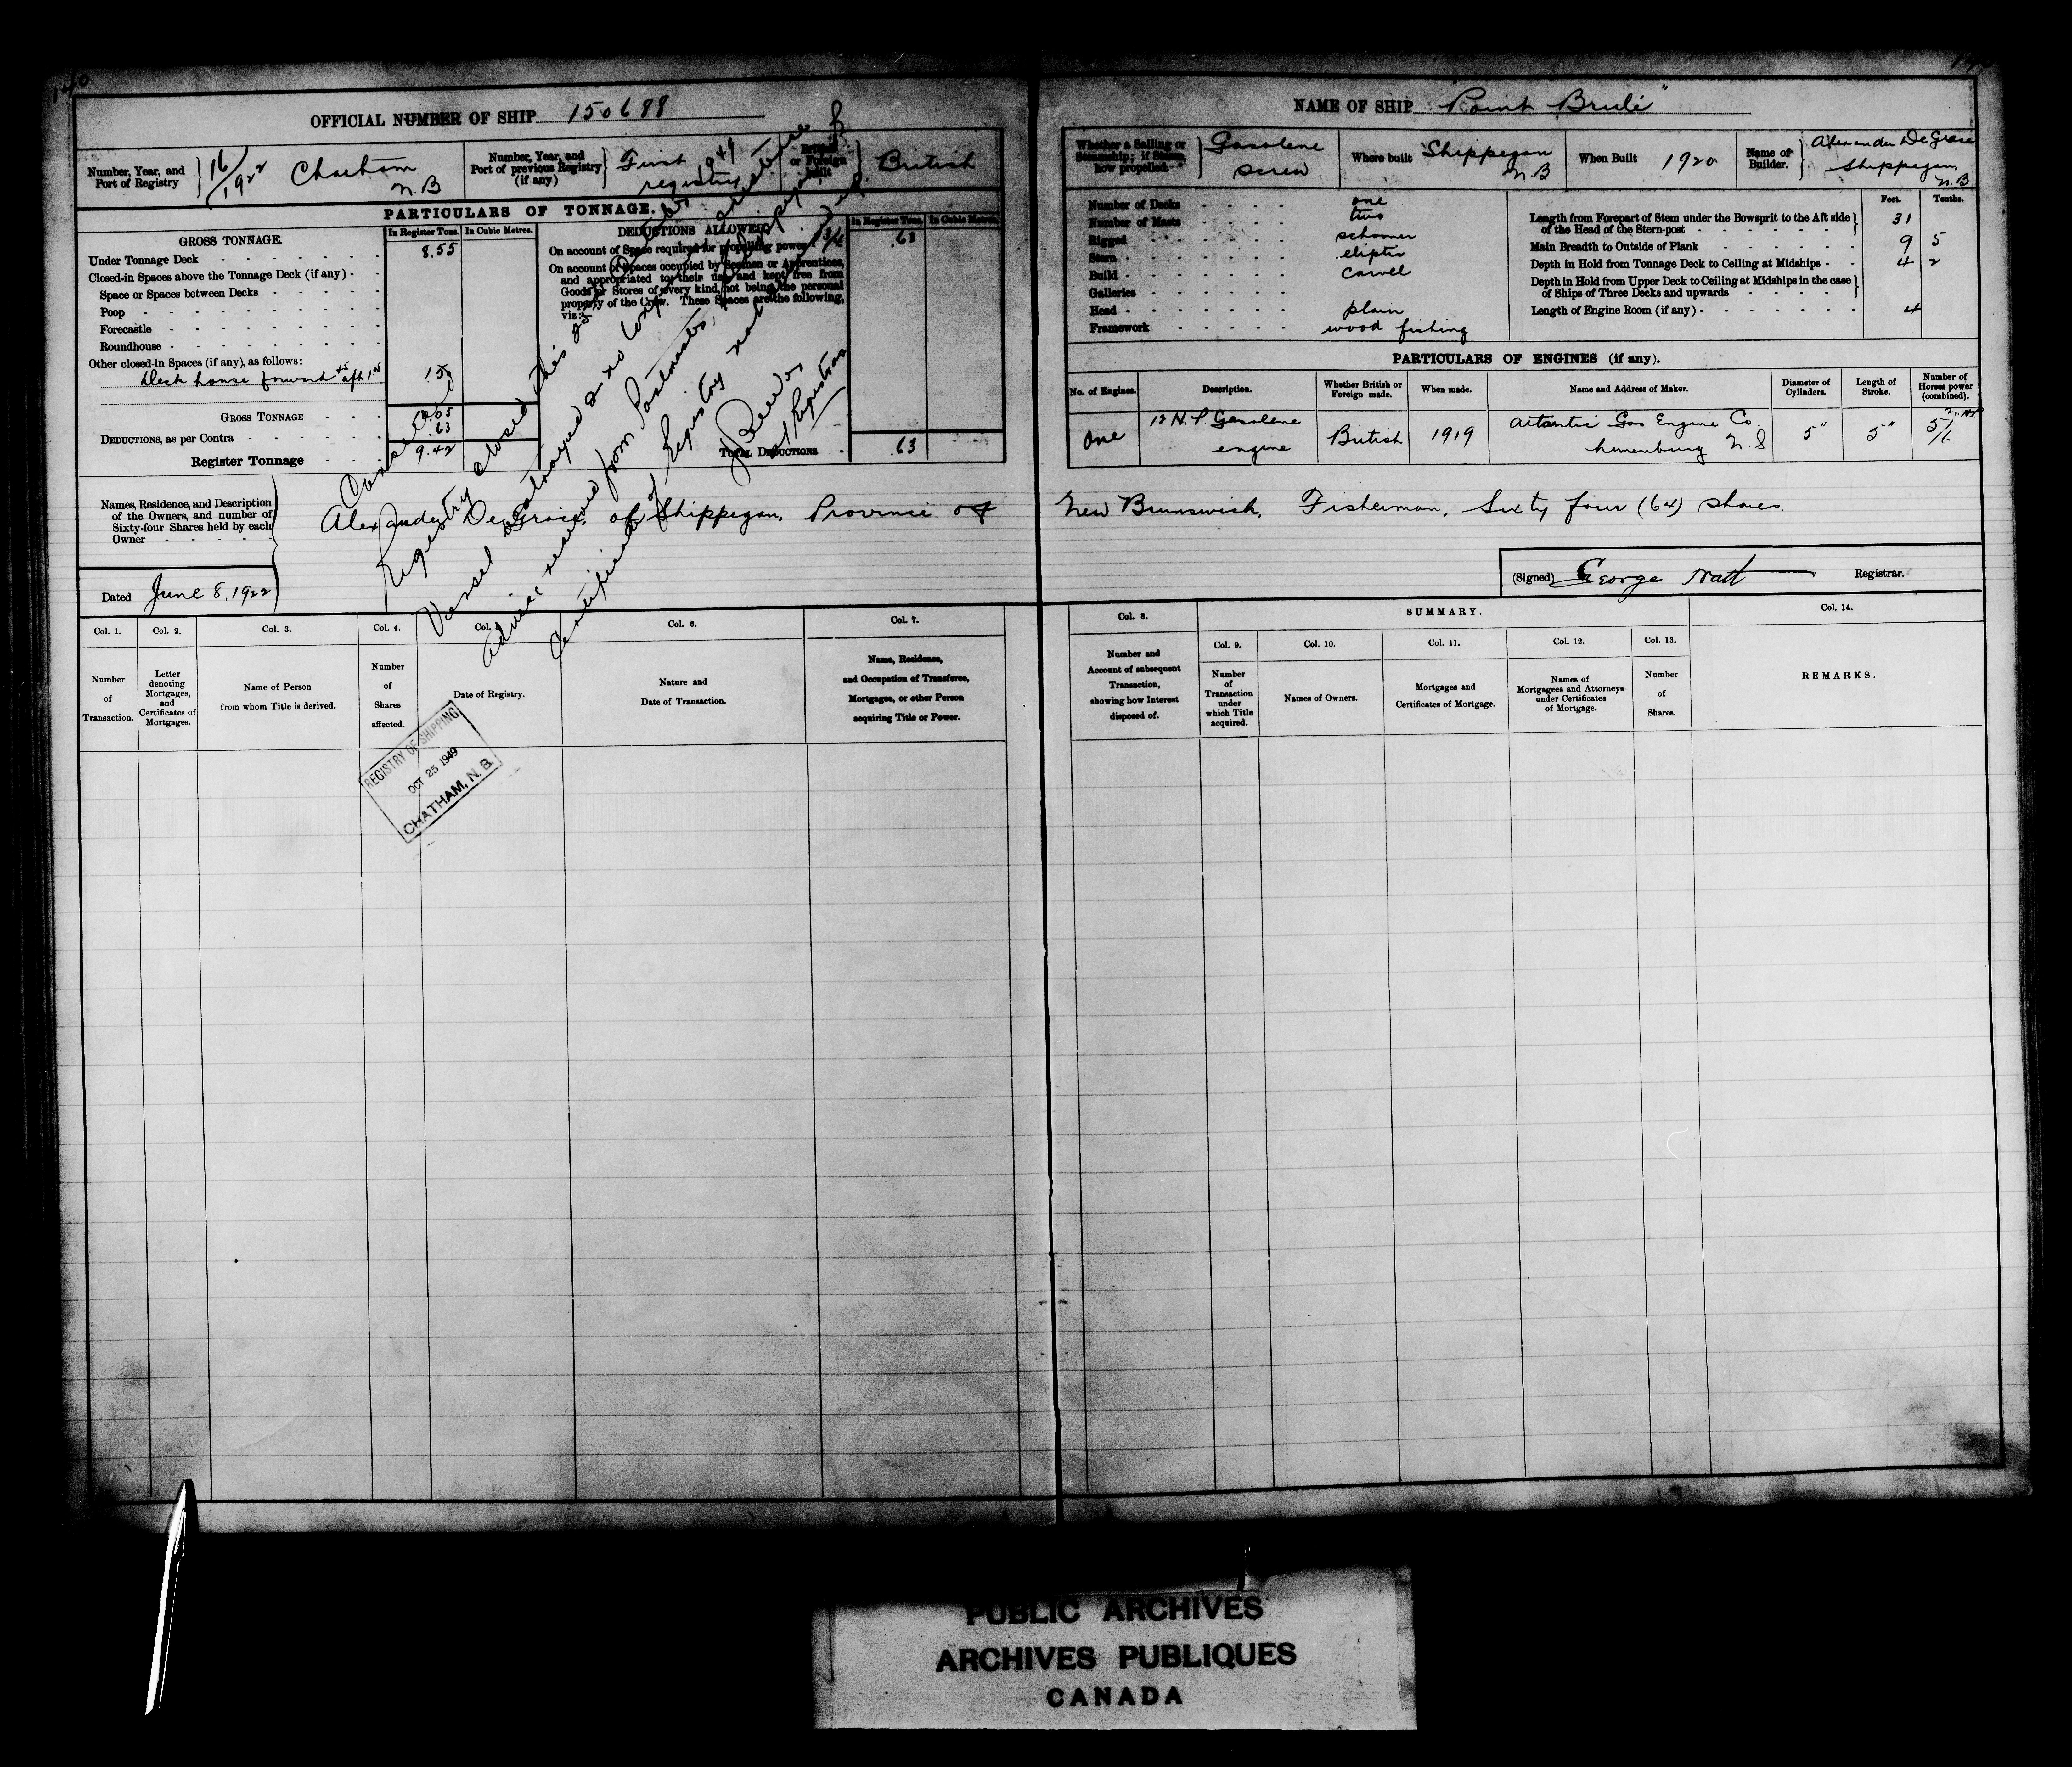 140
OFFICIAL NUMBER OF SHIP 150688
Number, Year, and Port of Registry
16/1922 Chatham N.B
Number, Year, and Port of previous Registry (if any)
First registry
British or Foreign built
British
PARTICULARS OF TONNAGE.
GROSS TONNAGE.
In Register Tons.
In Cubic Metres.
Under Tonnage Deck 8.55
Closed-in Spaces above the Tonnage Deck (if any)
Space or Spaces between Decks
Poop
Forecastle
Roundhouse
Other closed-in Spaces (if any), as follows:
Deck house forward
GROSS TONNAGE
DEDUCTIONS, as per Contra .63
Register Tonnage 9.42
DEDUCTIONS ALLOWED.
In Register Tons.
In Cubic Metres.
On account of Space required for propelling power .63
On account of Spaces occupied by Seamen or Apprentices,
and appropriated to their use, and kept free from
Goods or Stores of every kind, not being the personal
property of the Crew. These Spaces are the following,
viz:-
TOTAL DEDUCTIONS .63
Registry closed this 25 October 1949
Vessel destroyed
Advice received from Postmaster, Shippegan
Certificate of Registry not
Registrar
Names, Residence, and Description
of the Owners, and number of
Sixty-four Shares held by each
Owner
Alexander DeGrace, of Shippegan, Province of
Dated June 8, 1922
Col. 1.
Number of Transaction.
Col. 2.
Letter denoting Mortgages, and Certificates of Mortgages.
Col. 3.
Name of Person from whom Title is derived.
Col. 4.
Number of Shares affected.
Col.
Date of Registry.
Col. 6.
Nature and Date of Transaction.
Col. 7.
Name, Residence, and Occupation of Transferee, Mortgagee, or other Person acquiring Title or Power.
REGISTRY OF SHIPPING
OCT 25 1949
CHATHAM, N. B.
NAME OF SHIP "Point Brule"
Whether a Sailing or Steamship; if Steam, how propelled
Gasolene screw
Where built
Shippegan N.B
When Built
1920
Name of Builder.
Alexander DeGrace
Shippegan, N.B
Number of Decks one
Number of Masts two
Rigged schooner
Stern eliptic
Build carvel
Galleries
Head plain
Framework wood fishing
Feet.
Tenths.
Length from Forepart of Stem under the Bowsprit to the Aft side
of the Head of the Stern-post 31
Main Breadth to Outside of Plank 9 5
Depth in Hold from Tonnage Deck to Ceiling at Midships 4 2
Depth in Hold from Upper Deck to Ceiling at Midships in the case
of Ships of Three Decks and upwards
Length of Engine Room (if any) 4
PARTICULARS OF ENGINES (if any).
No. of Engines.
Description.
Whether British or Foreign made.
When made.
Name and Address of Maker.
Diameter of Cylinders.
Length of Stroke.
Number of Horses power (combined).
One
12 H.P. Gasolene engine
British
1919
Atlantic Gas Engine Co.
Lunenburg N.S
5"
5"
New Brunswick, Fisherman, Sixty four (64) shares.
(Signed) George Watt Registrar.
Col. 8.
Number and Account of subsequent Transaction, showing how Interest disposed of.
SUMMARY.
Col. 9.
Number of Transaction under which Title acquired.
Col. 10.
Names of Owners.
Col. 11.
Mortgages and Certificates of Mortgage.
Col. 12.
Names of Mortgagees and Attorneys under Certificates of Mortgage.
Col. 13.
Number of Shares.
Col. 14.
REMARKS.
PUBLIC ARCHIVES
ARCHIVES PUBLIQUES
CANADA